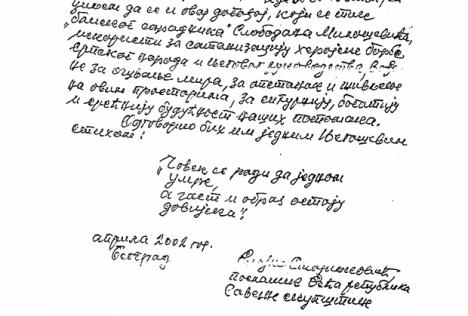 да се и овај догађај, који се тиче
„блиског сарадника" Слободана Милошевића,
искористи за сатанизацију херојске борбе
српског народа и његовог руководства,
не за очување мира, за опстанак и живљење
на овим просторима, за сигурнију, богатију
и срећнију будућност наших потомака.
Одговорио бих им једним Његошевим
стихом:
„Човек се роди да једном
умре,
а част и образ остају
довијека".
априла 2002 год.
Београд
посланик Већа република
Савезне скупштине